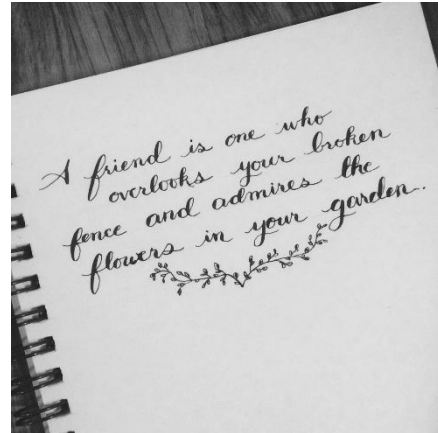 A friend is one who
overlooks your broken
fence and admires the
flowers in your garden.